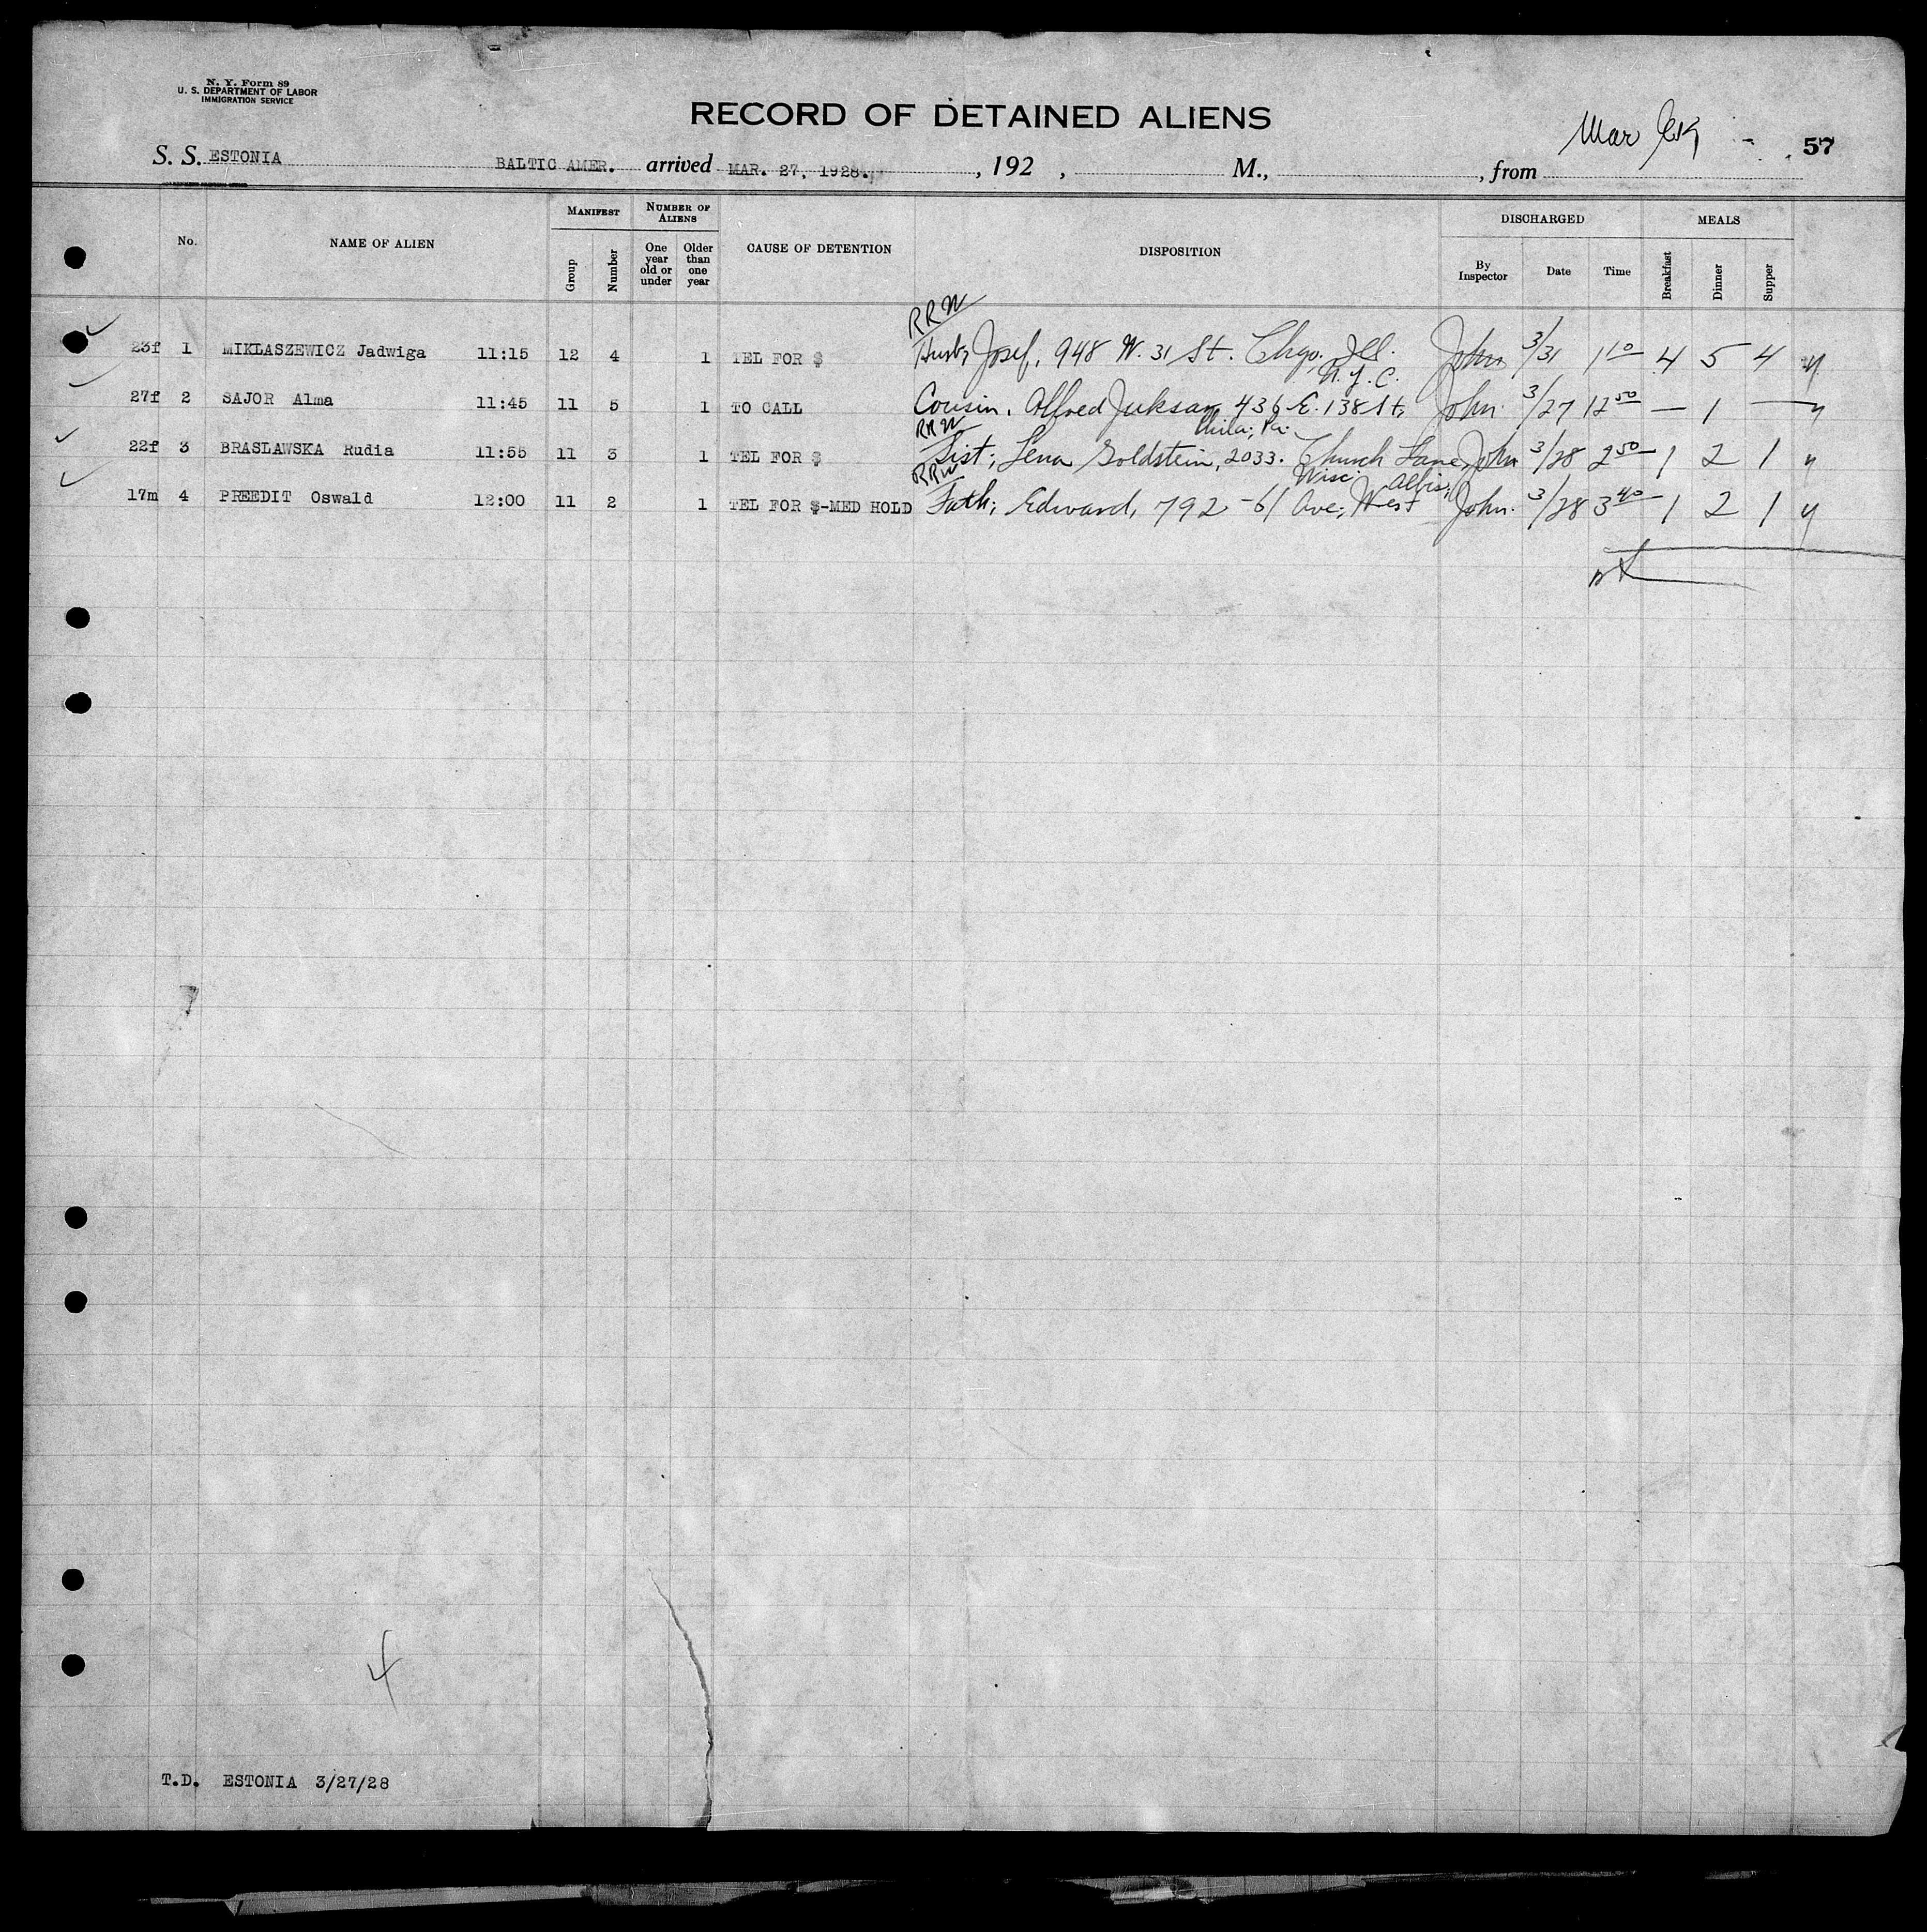 N. Y. Form 89
U. S. DEPARTMENT OF LABOR
IMMIGRATION SERVICE
RECORD OF DETAINED ALIENS
57
S. S. ESTONIA BALTIC AMER. arrived MAR. 27, 1928. , 192 , M., , from
No. NAME OF ALIEN MANIFEST Group Number NUMBER OF ALIENS One year old or under Older than one year CAUSE OF DETENTION DISPOSITION DISCHARGED By Inspector Date Time MEALS Breakfast Dinner Supper
RRW
23f 1 MIKLASZEWICZ Jadwiga 11:15 12 4 1 TEL FOR $ Husb, Josef, 948 W. 31 St. Chgo. Ill. John 3/31 1 10 4 5 4 y
N.Y.C.
27f 2 SAJOR Alma 11:45 11 5 1 TO CALL Cousin, Alfred Juksar, 436 E. 138 St, John 3/27 12 50 — 1 — y
RRW Phila; Pa.
22f 3 BRASLAWSKA Rudia 11:55 11 3 1 TEL FOR $ Sist; Lena Goldstein, 2033. Church Lane, John 3/28 2 50 1 2 1 y
RRW Wisc. Allis;
17m 4 PREEDIT Oswald 12:00 11 2 1 TEL FOR $-MED HOLD Fath; Edward, 792 - 61 Ave; West John. 3/28 3 40 1 2 1 y
4
T.D. ESTONIA 3/27/28